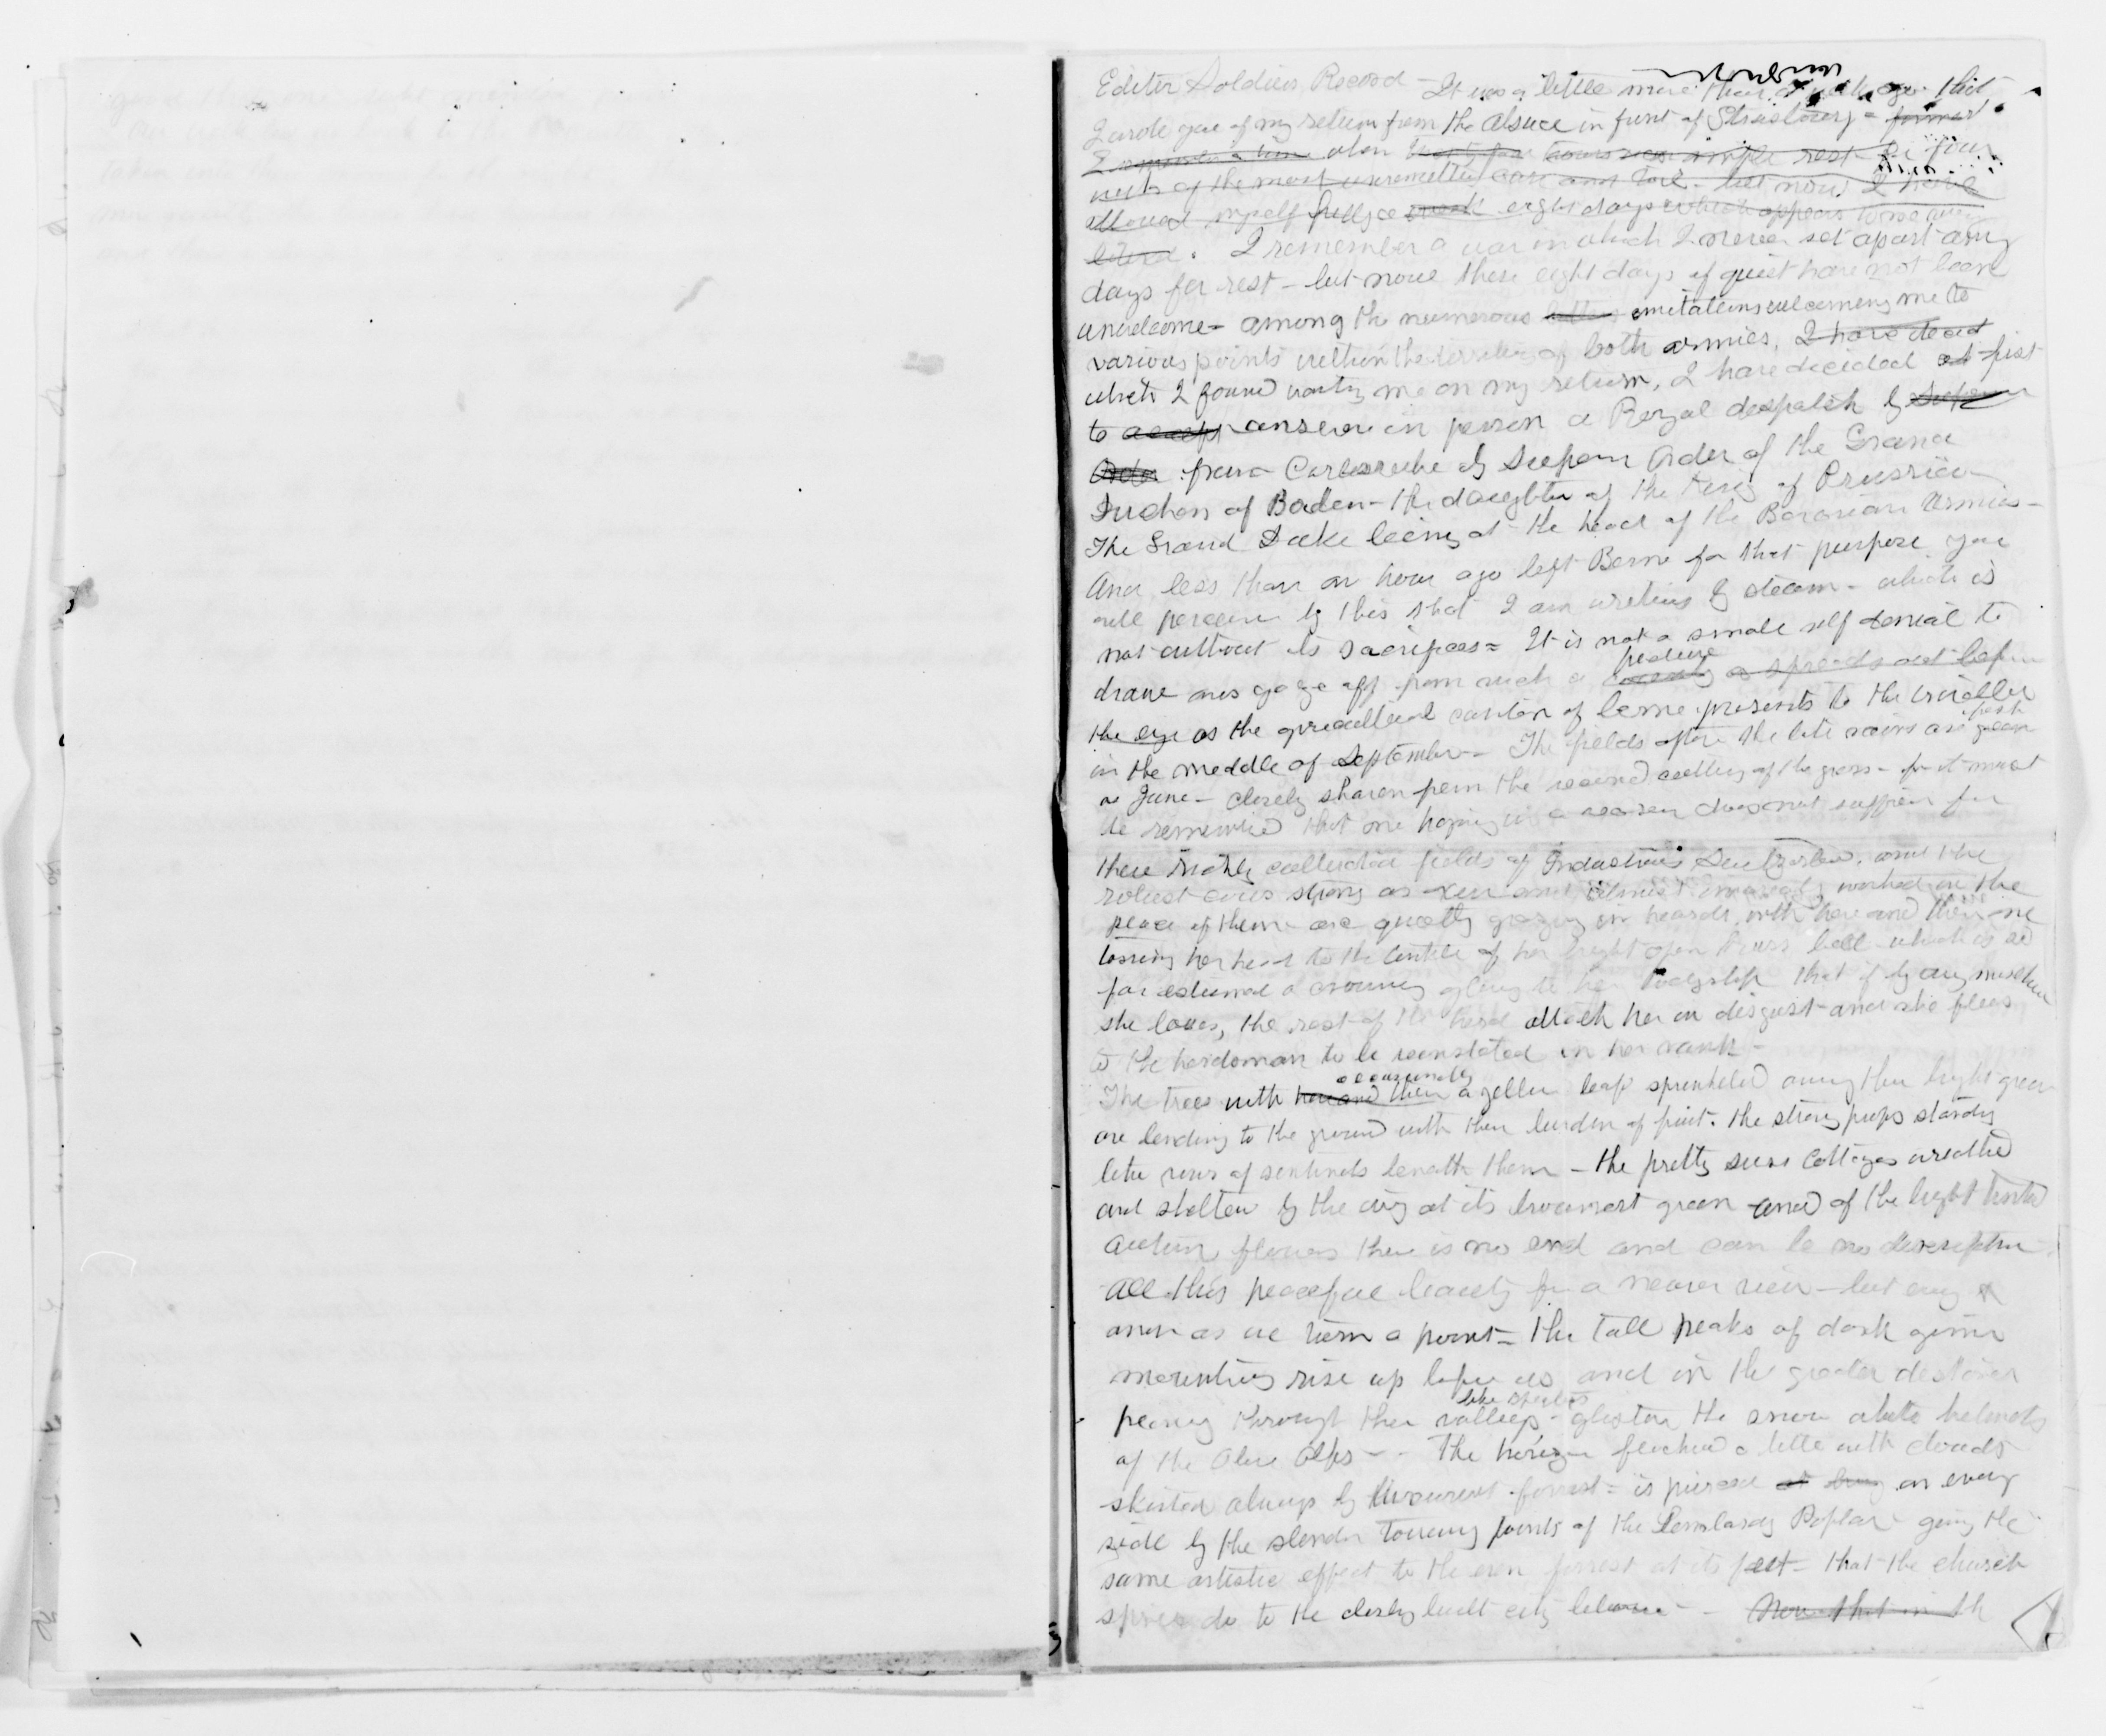 Editor Soldiers Record - It was a little more than a week ago that
I wrote you of my return from the Alsace in front of Strasbourg -
I remember a time when rest for four
weeks of the most unremitting care and toil - but now I have
allowed myself fully a week eight days which appears to me very
. I remember a war in which I never set apart any
days for rest - but now these eight days of quiet have not been
unwelcome - among the numerous invitations welcoming me to
various points within the territory of both armies, I have decid
which I found waiting me on my return, I have decided at first
to accept answer in person a Royal despatch by Supreme
Order from Carlsruhe by Supreme Order of the Grand
Duchess of Baden - the daughter of the King of Prussia -
The Grand Duke being at the head of the Armies -
And less than an hour ago left Berne for that purpose you
will perceive by this that I am writing by steam - which is
not without its sacrifices = It is not a small self denial to
draw ones gaze off from such a picture as spreads out before
the eye as the agricultural canton of berne presents to the traveller
in the meddle of September - The fields after the late rains are fresh green
as June - closely shaven from the second cutting of the grass - for it must
be remembered that one haying in a season does not suffice for
these richly cultivated fields of Industrious Switzerland, and the
robust cows strong as oxen and almost worked in the
place of them are quietly grazing in heards, with here and there one
tossing her head to the tinkle of her bright open bell - which is so
far esteemed a crowning glory to her ladyship that if by any mischance
she loses, the rest of the herd attack her in disgust - and she flees
to the herdsman to be reinstated in her rank -
The trees with here and there occasionally a yellow leaf sprinkeled among their bright green
are bending to the ground with their burden of fruit. the strong props standing
like rows of sentinels beneath them - the pretty swiss cottages wreathed
and by the ivy at its green - and of the bright tinted
autum flowers there is no end and can be no description -
All this peaceful beauty for a nearer view - but ever &
anon as we turn a point - the tall peaks of dark
mountains rise up before us and in the greater distance
peering through their valleys - like spectres glisten the snow white helmets
of the Alps - - The horizon flecked a little with clouds
skirted always by forrest = is pierced at on every
side by the slender towering points of the Lombardy Poplar - giving the
same artistic effect to the even forrest at its feet - that the church
spires do to the closely built city below - - Now that in th